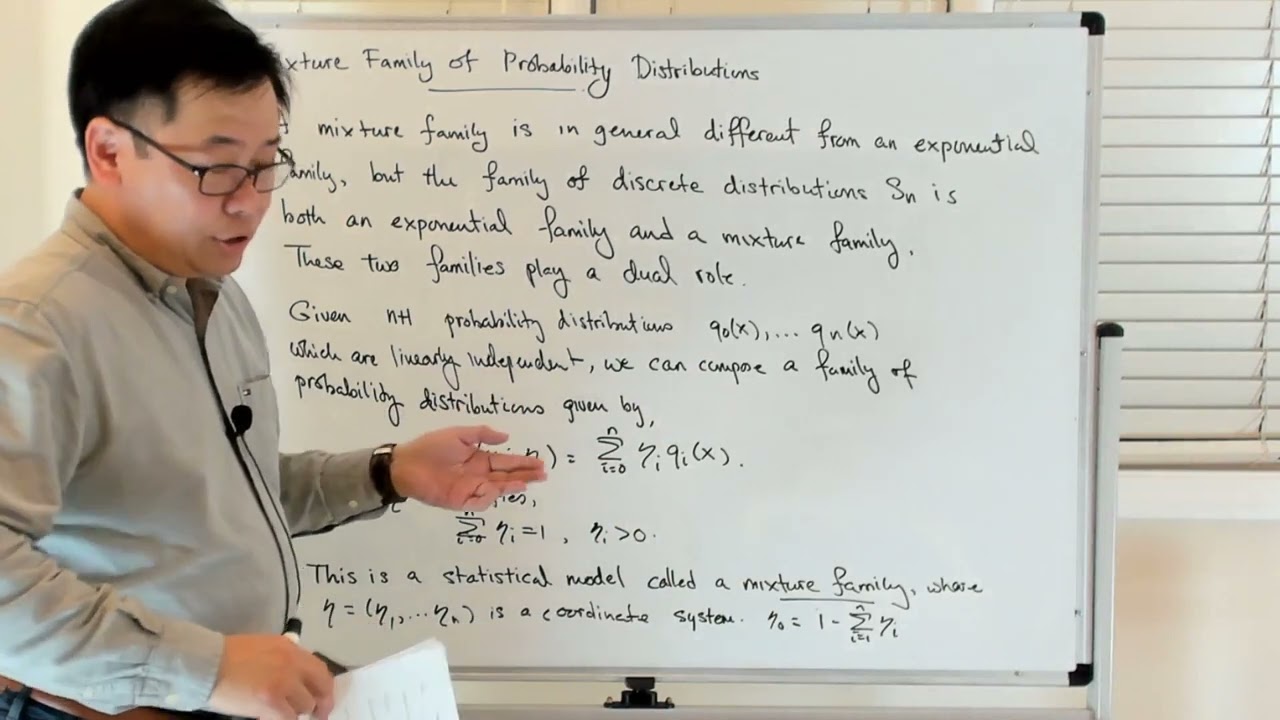 xture Family of Probability Distributions
mixture family is in general different from an exponential
amily, but the family of discrete distributions Sn is
both an exponential family and a mixture family.
These two families play a dual role.
Given n+1 probability distributions q0(x),... qn(x)
which are linearly independent, we can compose a family of
probability distributions given by,
) = ∑_{i=0}^{n} η_i q_i(x).
ies,
∑_{i=0}^{n} η_i = 1 , η_i > 0.
This is a statistical model called a mixture family, where
η = (η_1, ... η_n) is a coordinate system. η_0 = 1 - ∑_{i=1}^{n} η_i